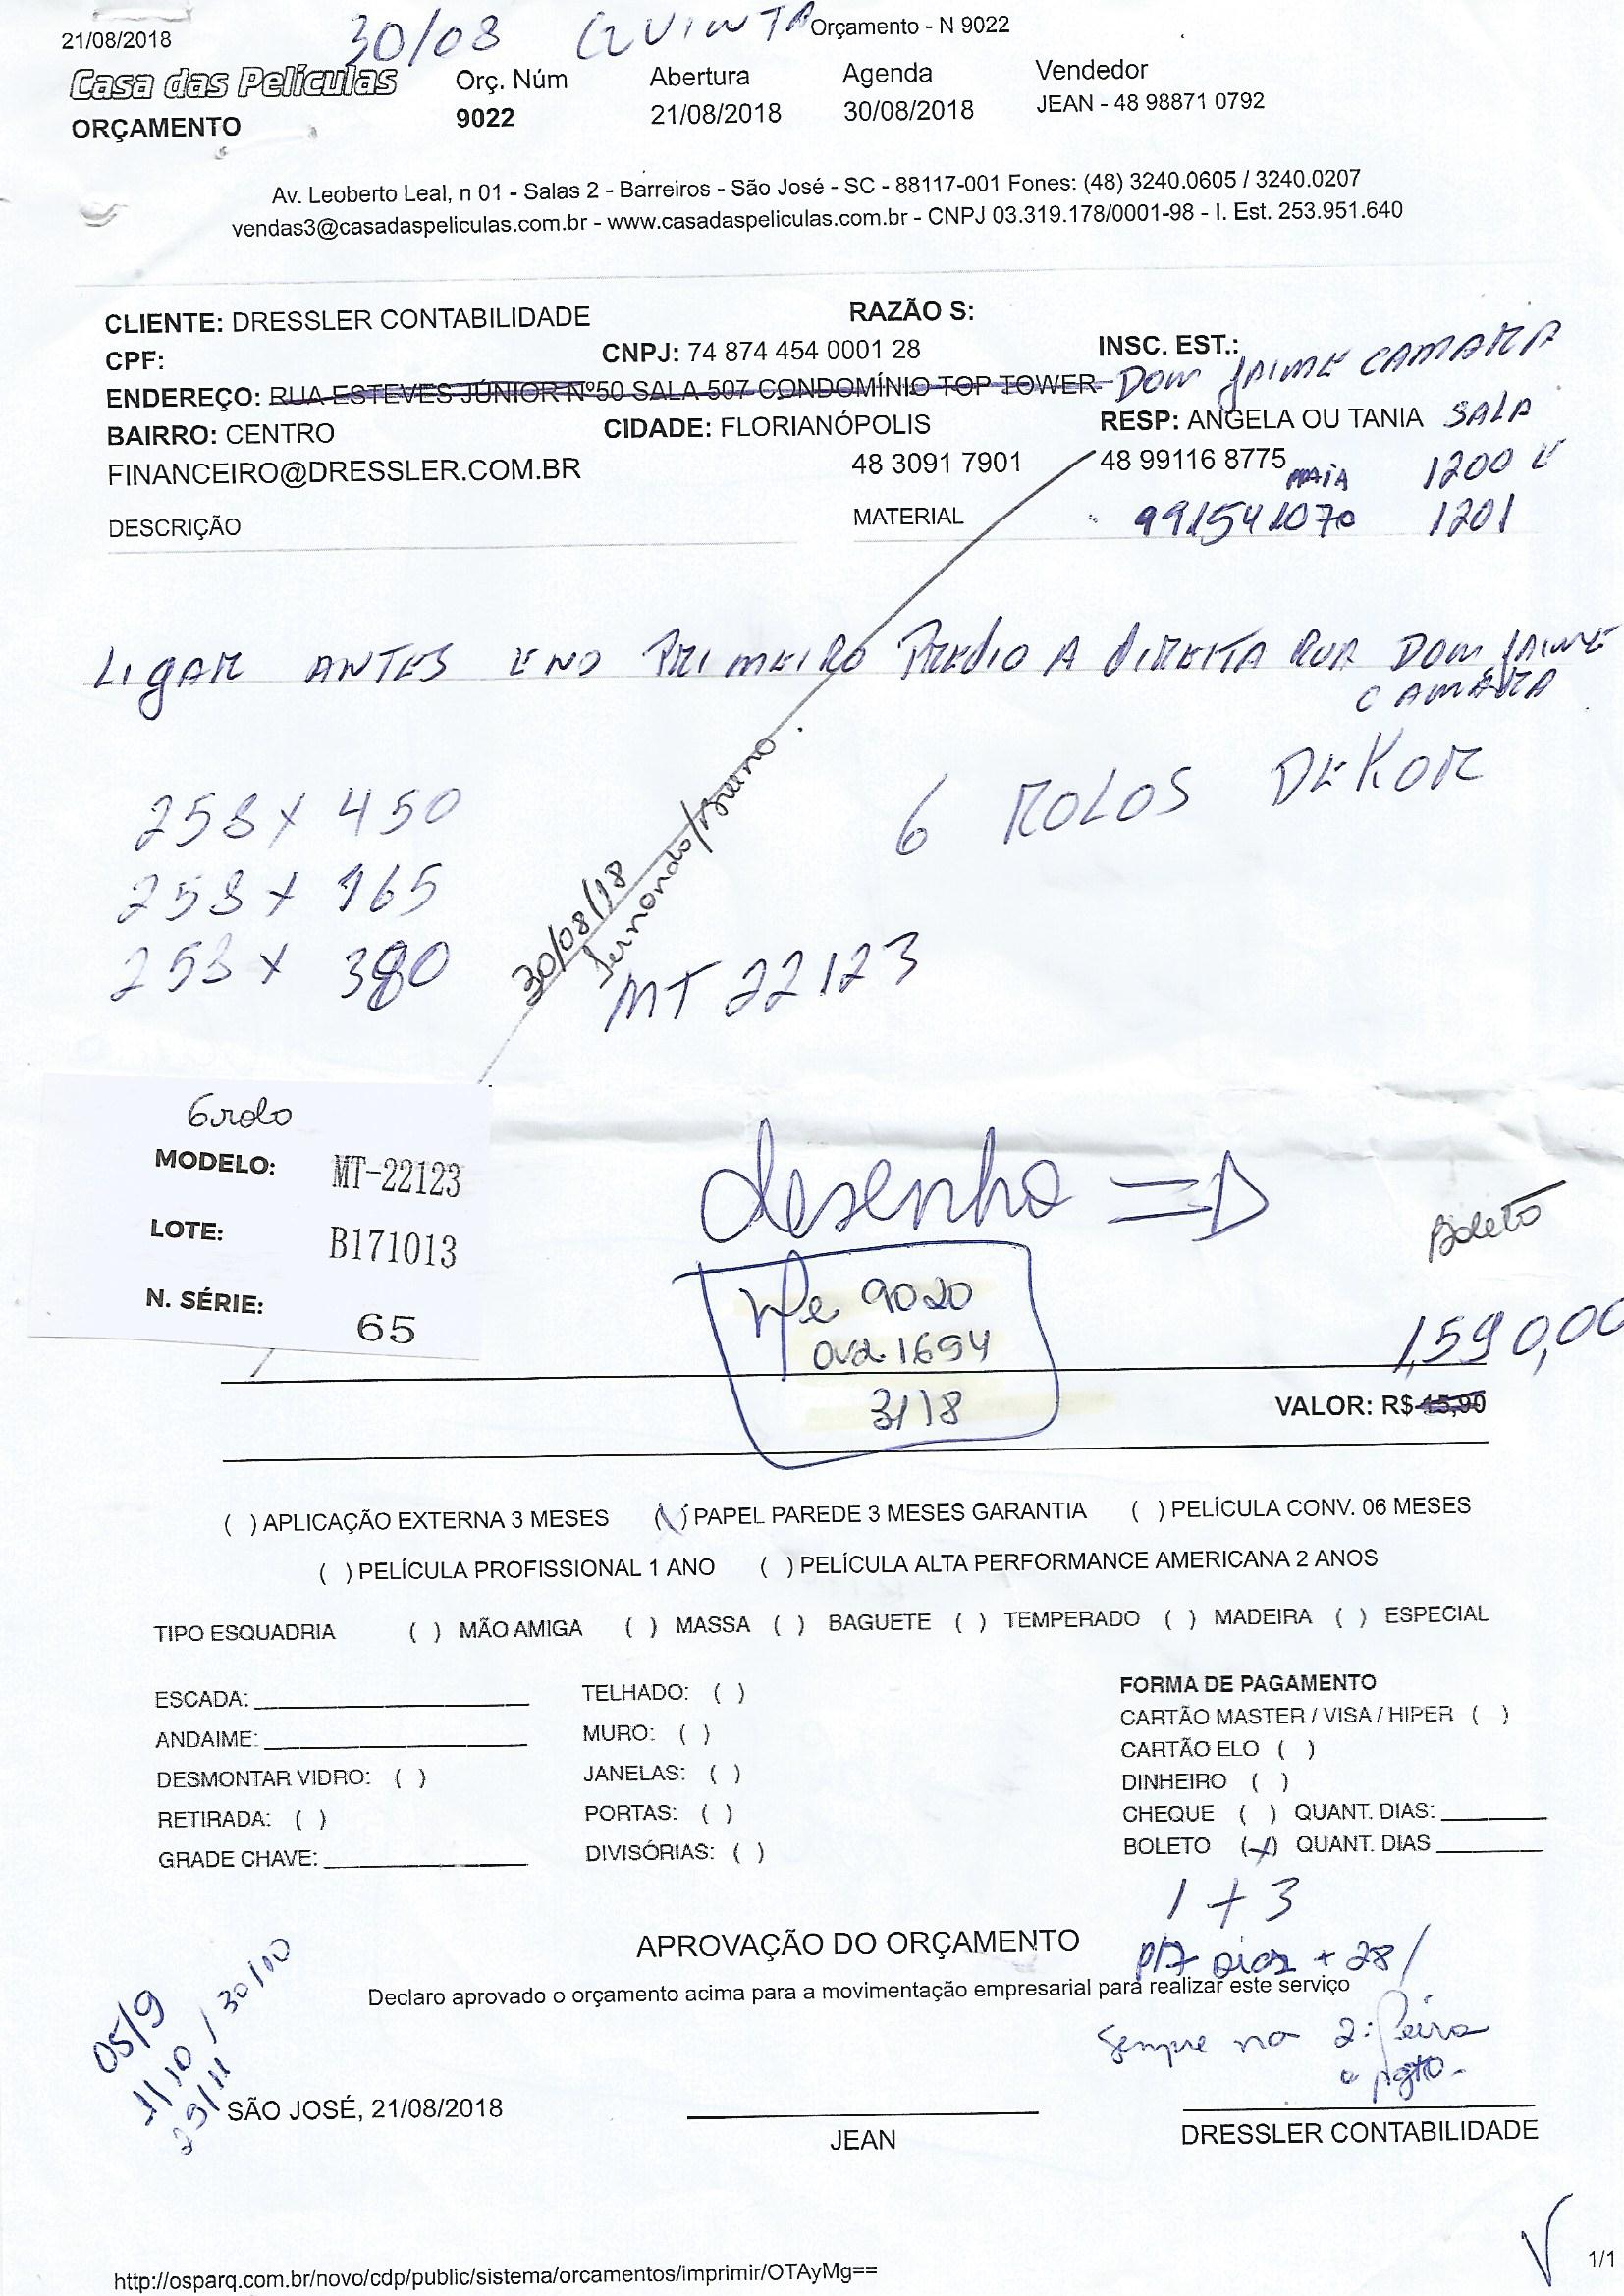 21/08/2018
30/08 QUINTA
Orçamento - N 9022
Casa das Películas
ORÇAMENTO
Orç. Núm
9022
Abertura
21/08/2018
Agenda
30/08/2018
Vendedor
JEAN - 48 98871 0792
Av. Leoberto Leal, n 01 - Salas 2 - Barreiros - São José - SC - 88117-001 Fones: (48) 3240.0605 / 3240.0207
vendas3@casadaspeliculas.com.br - www.casadaspeliculas.com.br - CNPJ 03.319.178/0001-98 - I. Est. 253.951.640
CLIENTE: DRESSLER CONTABILIDADE RAZÃO S:
CPF: CNPJ: 74 874 454 0001 28 INSC. EST.:
ENDEREÇO: RUA ESTEVES JÚNIOR Nº50 SALA 507 CONDOMÍNIO TOP TOWER DOM JAIME CAMARA
BAIRRO: CENTRO CIDADE: FLORIANÓPOLIS RESP: ANGELA OU TANIA SALA
FINANCEIRO@DRESSLER.COM.BR 48 3091 7901 48 99116 8775 MAIA 1200 E
DESCRIÇÃO MATERIAL 991541070 1201
LIGAR ANTES E NO PRIMEIRO PREDIO A DIREITA RUA DOM JAIME
CAMARA
258 x 450
6 ROLOS DEKOR
258 x 165
258 x 380
30/08/18
Fernando/Bruno
MT 22123
6 rolo
MODELO: MT-22123
LOTE: B171013
N. SÉRIE: 65
desenho =>
Boleto
Nfe 9020
1694
3118
1,590,00
VALOR: R$ 15,90
( ) APLICAÇÃO EXTERNA 3 MESES (\) PAPEL PAREDE 3 MESES GARANTIA ( ) PELÍCULA CONV. 06 MESES
( ) PELÍCULA PROFISSIONAL 1 ANO ( ) PELÍCULA ALTA PERFORMANCE AMERICANA 2 ANOS
TIPO ESQUADRIA ( ) MÃO AMIGA ( ) MASSA ( ) BAGUETE ( ) TEMPERADO ( ) MADEIRA ( ) ESPECIAL
ESCADA:
ANDAIME:
DESMONTAR VIDRO: ( )
RETIRADA: ( )
GRADE CHAVE:
TELHADO: ( )
MURO: ( )
JANELAS: ( )
PORTAS: ( )
DIVISÓRIAS: ( )
FORMA DE PAGAMENTO
CARTÃO MASTER / VISA / HIPER ( )
CARTÃO ELO ( )
DINHEIRO ( )
CHEQUE ( ) QUANT. DIAS:
BOLETO (x) QUANT. DIAS
1 + 3
APROVAÇÃO DO ORÇAMENTO
p/7 dias + 28/
Declaro aprovado o orçamento acima para a movimentação empresarial para realizar este serviço
Sempre na 2ª feira
o pgto.
05/9
1/10 / 30/10
29/11
SÃO JOSÉ, 21/08/2018
JEAN
DRESSLER CONTABILIDADE
http://osparq.com.br/novo/cdp/public/sistema/orcamentos/imprimir/OTAyMg==
1/1